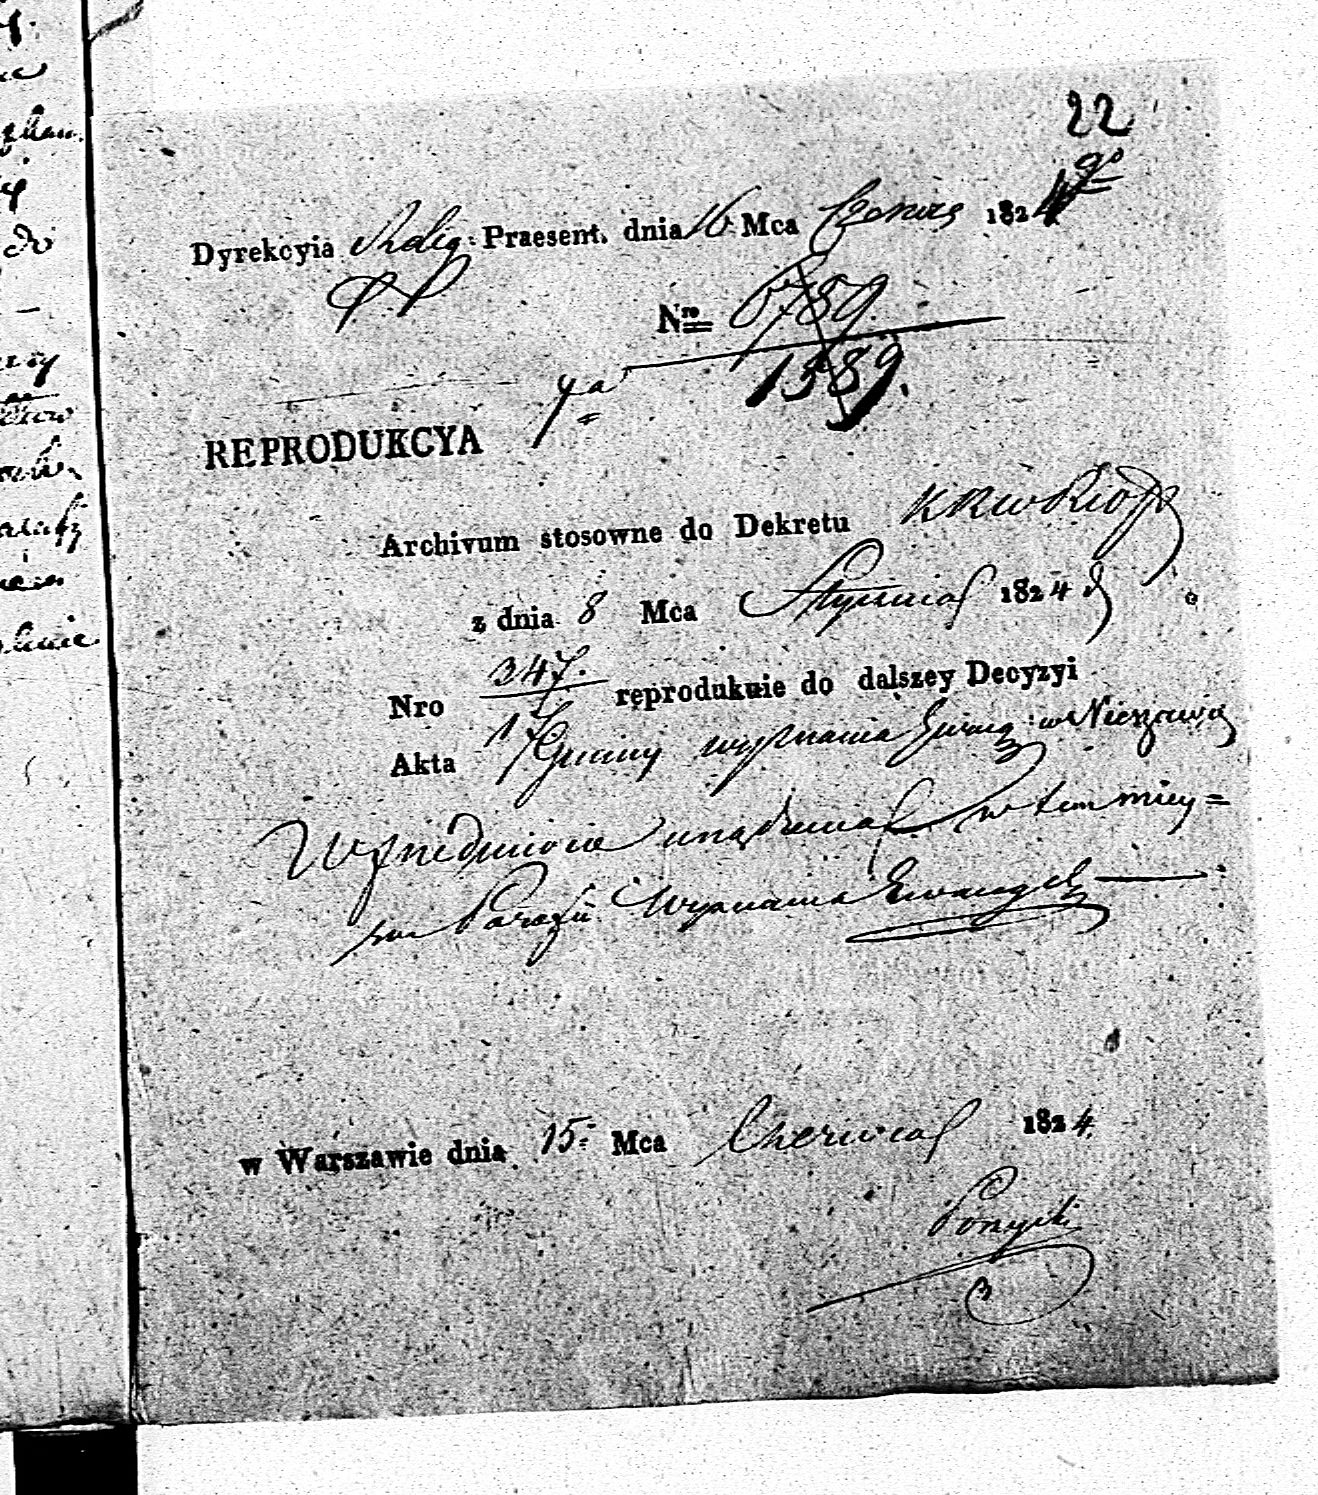 22
Dyrekcyia Relig: Praesent. dnia 16 Mca Czerwca 1824
Nro 6789.
1589.
REPRODUKCYA
Archivum stosowne do Dekretu KRWRiOP
z dnia 8 Mca Stycznia 1824
Nro 347.
17
reprodukuie do dalszey Decyzyi
Akta Gminy wyznania Ewang: w Nieszawie
Względnie urządzenia w tem miey=
scu Parafii Wyznania Ewangel:
w Warszawie dnia 15: Mca Czerwca 1824.